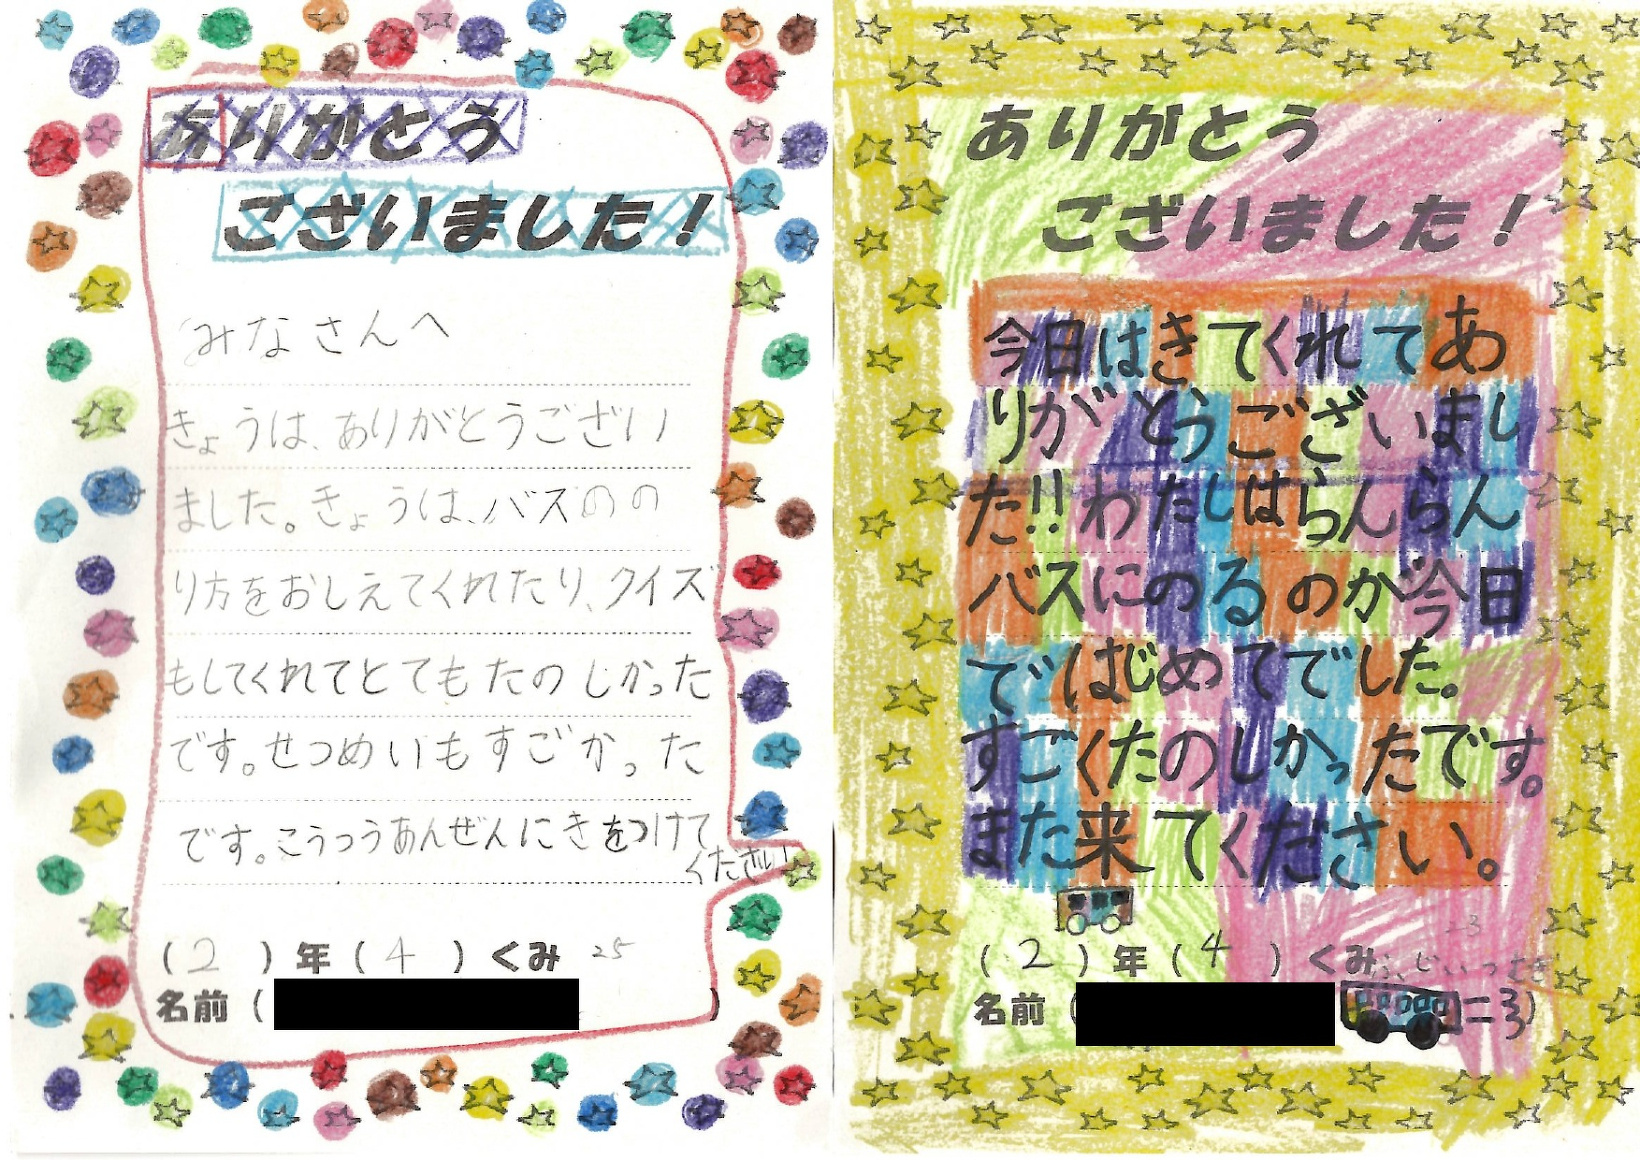 ありがとう
ございました!
みなさんへ
きょうは、ありがとうござい
ました。きょうは、バスのの
り方をおしえてくれたり、クイズ
もしてくれてとてもたのしかった
です。せつめいもすごかった
です。こうつうあんぜんにきをつけて
ください
(2)年(4)くみ 25
名前( )
ありがとう
ございました!
今日はきてくれてあ
りがとうございまし
た!!わたしはらんらん
バスにのるのが今日
ではじめてでした。
すごくたのしかったです。
また来てください。
23
(2)年(4)くみ
名前( )